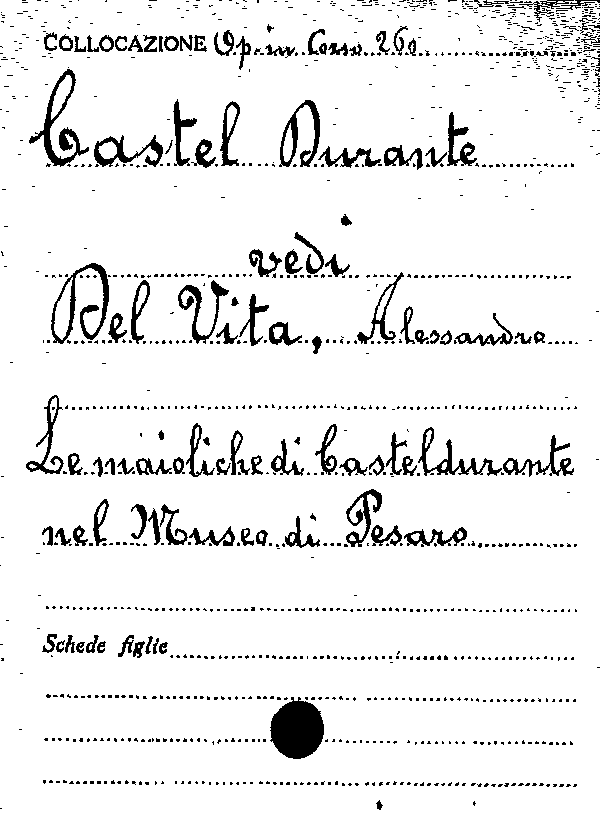 COLLOCAZIONE Op. in Corso 260
Castel Durante
vedi
Del Vita, Alessandro
Le maioliche di Casteldurante
nel Museo di Pesaro.
Schede figlie